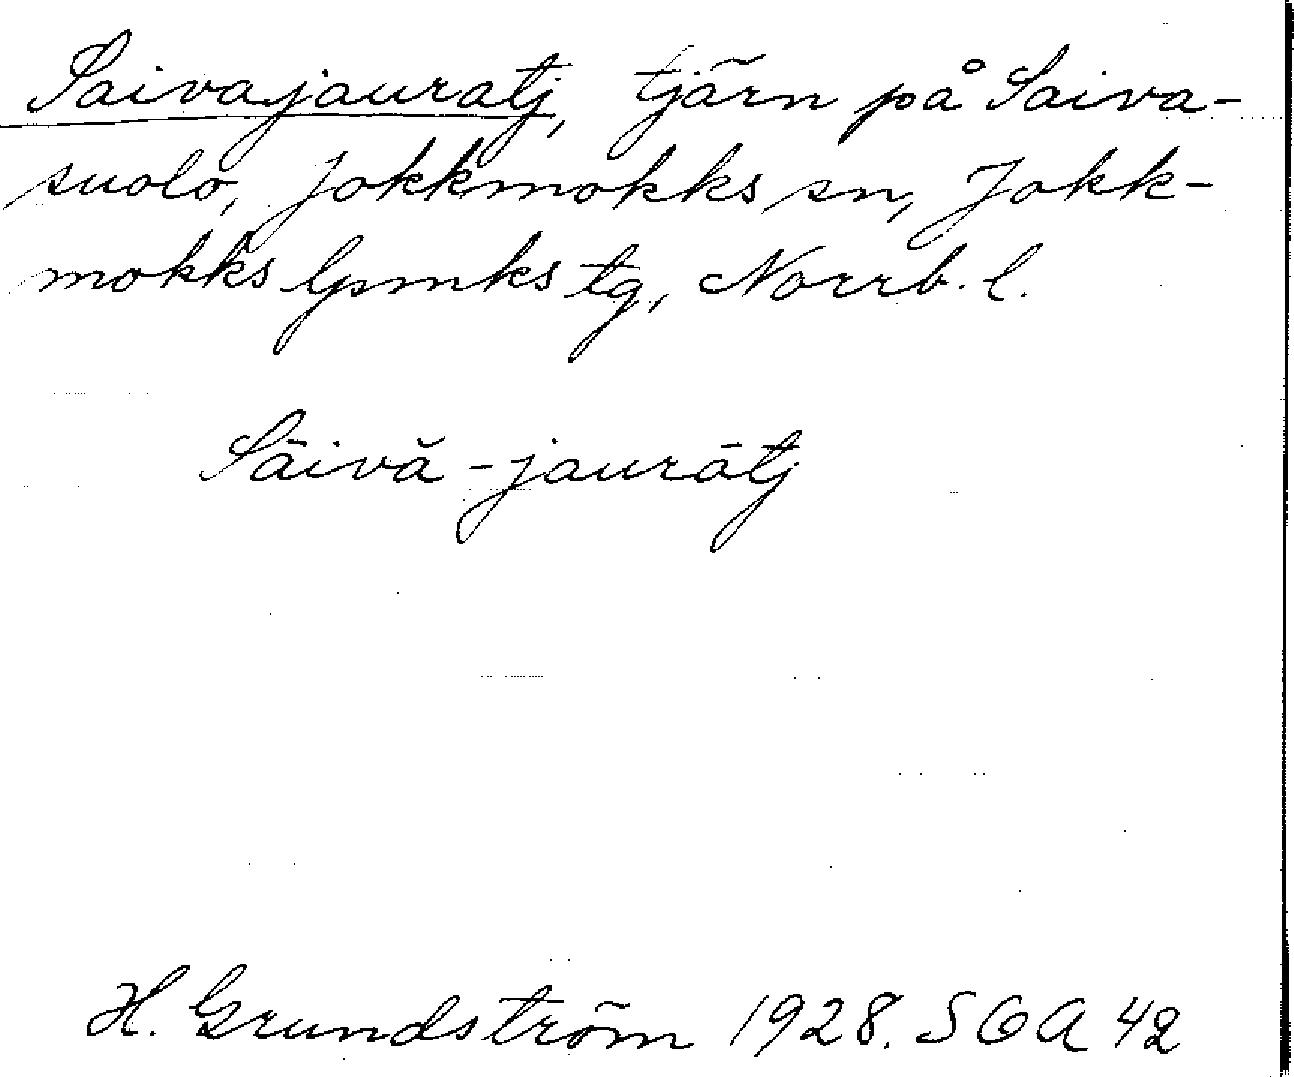 Saivajauratj, tjärn på Saiva-
suolo, Jokkmokks sn, Jokk-
mokks lpmks tg, Norrb. l.
Sāivă-jaurātj
H. Grundström 1928. SOA 42